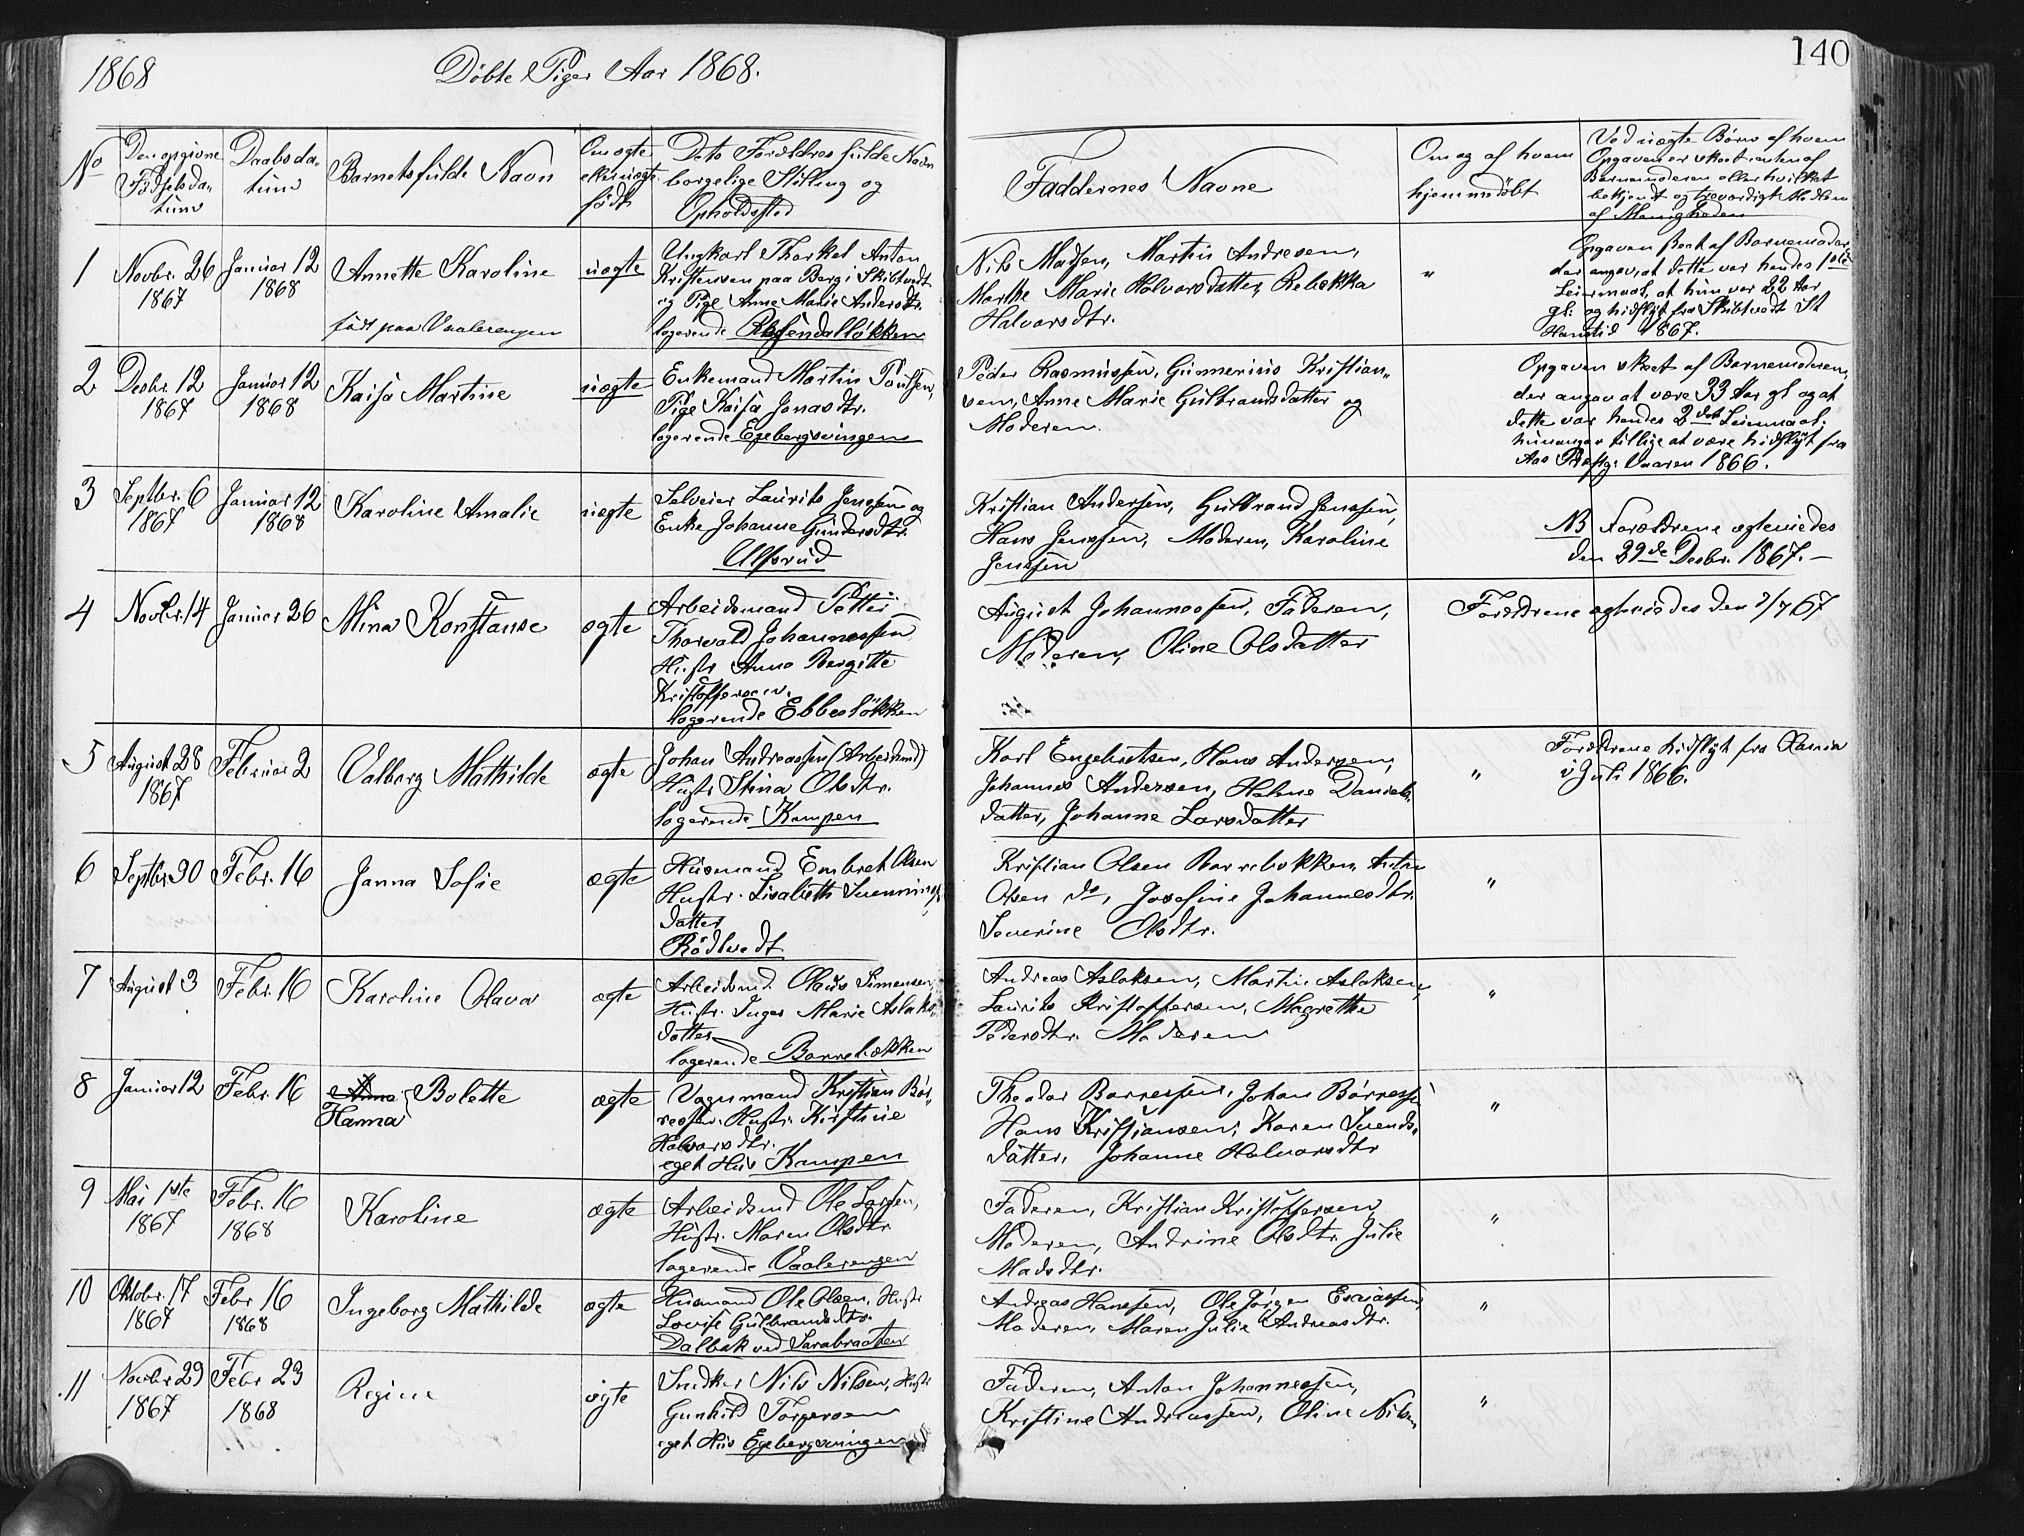 1868
Döbte Piger Aar 1868.
140
No
Den opgivne
Födselsda-
tum
Daabsda-
tum
Barnets fulde Navn
Om ægte
eller uægte
födt
Dets Forældres fulde Navn
borgelige Stilling og
Opholdssted
Faddernes Navne
Om og af hvem
hjemmedöbt
Ved uægte Börn af hvem
Opgaven er skeet enten af
Barnemoderen eller hvilket
bekjendt og troværdigt Medlem
af Menigheden
1
Novbr. 26
1867
Januar 12
1868
Annette Karoline
født paa Vaalerengen
uægte
Ungkarl Thorkel Anton
Kristensen paa Berg i Skibtvedt
og Pige Anne Marie Andersdtr.
logerende Rosendalløkken
Nils Madsen, Martin Andresen,
Marthe Marie Halvorsdatter, Rebekka
Halvorsdtr.
"
Opgaven skeet af Barnemoder,
der angav, at dette var hendes 1ste
Leiermaal, at hun var 22 Aar
gl: og hidflyt fra Skibtvedt St
Hanstid 1867.
2
Decbr. 12
1867
Januar 12
1868
Kaisa Martine
uægte
Enkemand Martin Poulsen,
Pige Kaisa Jonasdtr.
logerende Egebergsvingen
Peder Rasmussen, Gunnerius Kristian-
sen, Anne Marie Gulbrandsdatter og
Moderen.
Opgaven skeet af Barnemoderen,
der angav at være 33 Aar gl og at
dette var hendes 2det Leiermaal.
hun angav tillige at være hidflyt fra
Aas Præstg. Vaaren 1866.
3
Septbr. 6
1867
Januar 12
1868
Karoline Amalie
uægte
Selveier Laurits Jenssen og
Enke Johanne Gundersdtr.
Ulfsrud
Kristian Andersen, Gulbrand Jenssen,
Hans Jenssen, Moderen, Karoline
Jenssen
NB Forældrene egteviedes
den 29de Decbr. 1867.
4
Novbr. 14
Januar 26
Mina Konstanse
ægte
Arbeidsmand Petter
Thorvald Johannessen
Hustr Anne Bergitte
Kristoffersen.
logerende Ebbesløkken
August Johannessen, Faderen,
Moderen, Oline Olsdatter
Forældrene egteviedes den 7/7 67
5
August 28
1867
Februar 2
Valborg Mathilde
ægte
Johan Andreassen (Arbeidsmd)
Hustr Stina Olsdtr.
logerende Kampen
Karl Engebretsen, Hans Andersen,
Johannes Andersen, Helene Daniels-
datter, Johanne Larsdatter
"
Forældrene hidflyt fra Xania
i Juli 1866.
6
Septbr. 30
Febr. 16
Janna Sofie
ægte
Husmand Embret Olsen
Hustr. Lisabeth Svennings-
datter
Rödtvedt
Kristian Olsen Borrebekken, Anton
Olsen do, Josefine Johannesdtr.
Severine Olsdtr.
"
7
August 3
Febr. 16
Karoline Olava
ægte
Arbeidsmd. Olaus Simensen
Hustr. Inger Marie Aslaks-
datter
logerende Borrebækken
Andreas Aslaksen, Martin Aslaksen,
Laurits Kristoffersen, Magrethe
Pedersdtr. Moderen
"
8
Januar 12
Febr. 16
Anna Bolette
Hanna
ægte
Vognmand Kristian Bör-
ressen. Hustr. Kirstine
Halvorsdtr.
eget Hus Kampen
Theodor Børresen, Johan Börresen
Hans Kristiansen, Karen Svends-
datter, Johanne Halvorsdtr
"
9
Mai 1ste
1867
Febr. 16
1868
Karoline
ægte
Arbeidsmd Ole Larssen,
Hustr. Maren Olsdtr
logerende Vaalerengen
Faderen, Kristian Kristoffersen,
Moderen, Andrine Olsdtr. Julie
Madsdtr.
"
10
Oktobr. 17
1867
Febr 16
1868
Ingeborg Mathilde
ægte
Husmand Ole Olsen, Hustr
Lovise Gulbrandsdtr.
Dalbak ved Sarabraaten
Andreas Hanssen, Ole Jörgen Esaiassen,
Moderen, Maren Julie Andreasdtr.
"
11
Novbr 29
1867
Febr 23
1868
Regine
ægte
Snedker Nils Nilsen, Hustr
Gunhild Torgersen
eget Hus Egebergsvingen
Faderen, Anton Johannessen,
Kristine Andreassen, Oline Nilsen
"